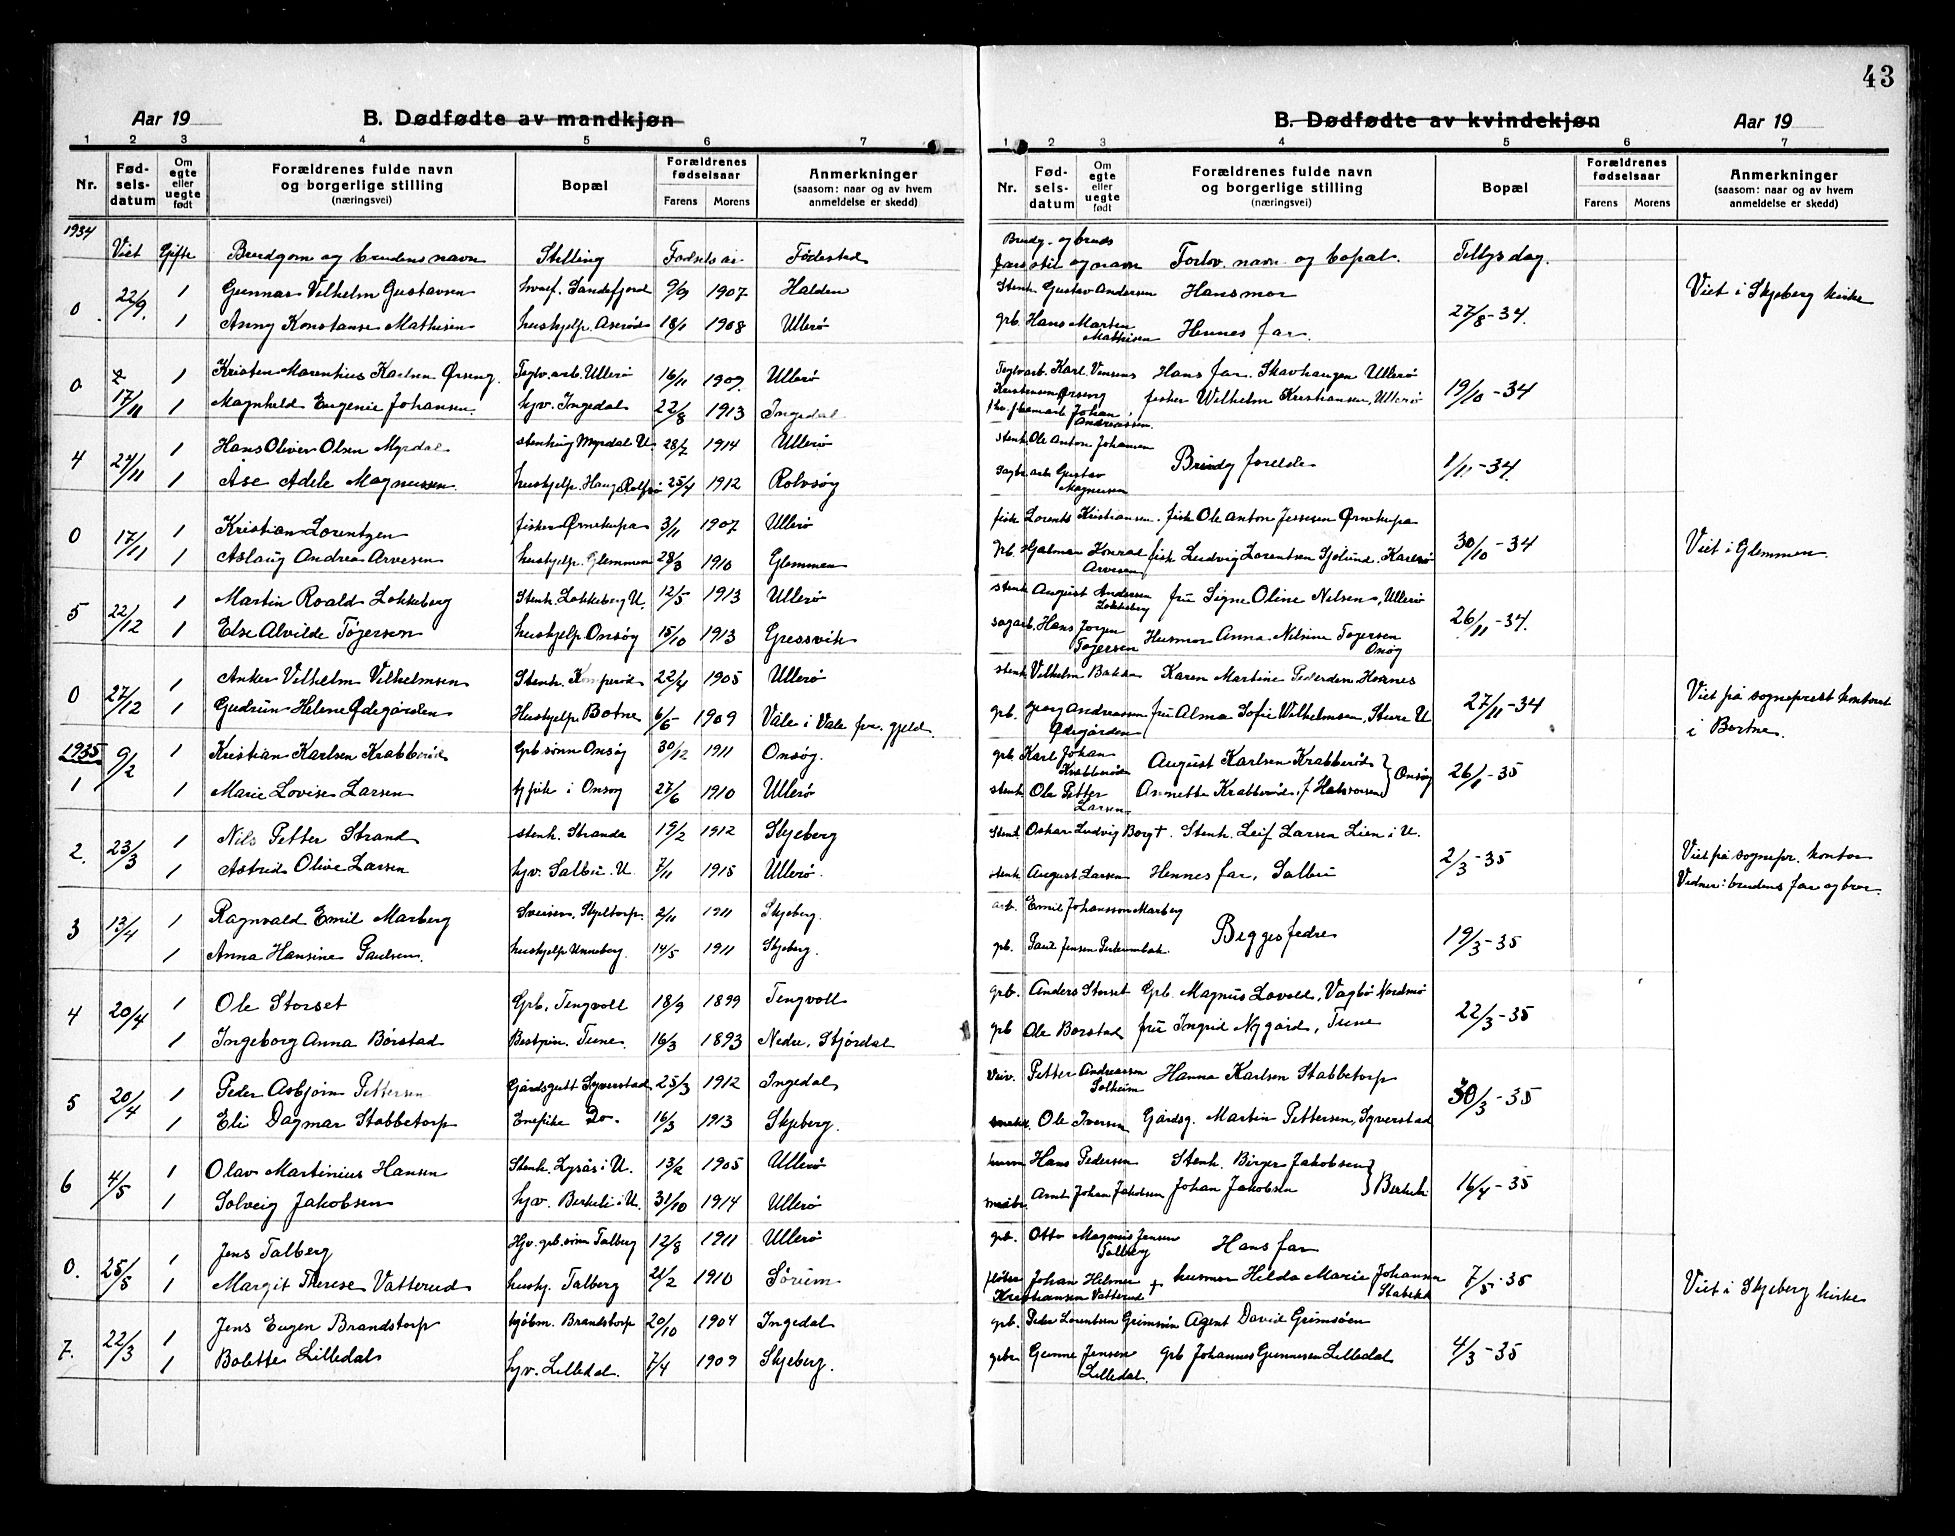 43
Aar 19
B. Dødfødte av mandkjøn
1 2 3 4 5 6 7
Nr.
Fød-
sels-
datum
Om
egte
eller
uegte
født
Forældrenes fulde navn
og borgerlige stilling
(næringsvei)
Bopæl
Forældrenes
fødselsaar
Farens Morens
Anmerkninger
(saasom: naar og av hvem
anmeldelse er skedd)
1934
Viet Gifte Brudgom og brudens navn Stilling Fødsels år Fødested
0 22/9 1 Gunnar Vilhelm Gustavsen Sandefjord 9/9 1907 Halden
1 Anny Konstanse Mathisen hushjelp. Aserød 18/1 1908 Ullerø
0 17/11 1 Kristen Marentius Karlsen Ørseng Teglv.arb. Ullerø 16/11 1909 Ullerø
1 Magnhild Eugenie Johansen hjv. Ingedal 22/8 1913 Ingedal
4 24/11 1 Hans Oliver Olsen Myrdal stenhug Myrdal U. 28/7 1914 Ullerø
1 Åse Adele Magnussen hushjelp. Haug Rolfsø 25/4 1912 Rolvsøy
0 17/11 1 Kristian Lorentzen fisker Ørnekupa 3/11 1907 Ullerø
1 Aslaug Andrea Arvesen hushjelp. Glemmen 28/3 1910 Glemmen
5 22/12 1 Martin Roald Løkkeberg Stenh. Løkkeberg U. 12/5 1913 Ullerø
1 Else Alvilde Tøgersen hushjelp Onsøy 15/10 1913 Gressvik
0 27/12 1 Anker Vilhelm Vilhelmsen Stenh. Kamperød 22/4 1905 Ullerø
1 Gudrun Helene Ødegården Hushjelp Botne 6/6 1909 Våle i Våle pr. gjeld.
1935
1 9/2 1 Kristian Karlsen Krabberød Gbr sønn Onsøy 30/12 1911 Onsøy.
1 Marie Lovise Larsen i Onsøy 27/6 1910 Ullerø
2. 23/3 1 Nils Petter Strand stenh. Stranda 19/2 1912 Skjeberg
1 Astrid Olive Larsen hjv. Solbu. U 7/11 1915 Ullerø.
3 13/4 1 Ragnvald Emil Marberg Sveiser. Skjeltorp. 2/11 1911 Skjeberg.
1 Anna Hansine Paulsen. hushjelp Unneberg. 14/5 1911 Skjeberg.
4 20/4 1 Ole Storset Grb. Tingvoll 18/9 1899 Tingvoll
1 Ingeborg Anna Børstad Tune. 16/3 1893 Nedre. Stjørdal
5 20/4 1 Peder Asbjørn Pettersen Gårdsgutt Syverstad 25/3 1912 Ingedal
1 Eli Dagmar Stabbetorp Do. 16/3 1913 Skjeberg.
6 4/5 1 Olav Martinius Hansen Stenh. Lysås i U. 13/2 1905 Ullerø
1 Solveig Jakobsen hjv. Berkeli i U. 31/10 1914 Ullerø
0. 25/5 1 Jens Talberg Hjv. grb. sønn Talberg 12/8 1911 Ullerø
1 Margit Therese Vatterud hushj. Talberg 21/2 1910 Sørum
7. 22/3 1 Jens Eugen Brandstorp kjøbm. Brandstorp 20/10 1904 Ingedal
1 Bolette Lilledal hjv. Lilledal. 7/4 1909 Skjeberg.
B. Dødfødte av kvindekjøn
Aar 19
1 2 3 4 5 6 7
Nr.
Fød-
sels-
datum
Om
egte
eller
uegte
født
Forældrenes fulde navn
og borgerlige stilling
(næringsvei)
Bopæl
Forældrenes
fødselsaar
Farens Morens
Anmerkninger
(saasom: naar og av hvem
anmeldelse er skedd)
Brudg. og bruds
fars stil og navn Forlov. navn og bopæl. Tillysdag.
Stenh. Gustav Andersen Hans mor Viet i Skjeberg kirke
27/8-34.
grb. Hans Martin
Mathisen Hennes far.
Teglv arb. Karl Hans far. Skavhaugen Ullerø
Kristensen Ørseng fisker Wilhelm Kristiansen, Ullerø 19/10-34
Johan
Andreassen.
stenh. Ole Anton Johansen
Brudg forelde 1/11-34.
arb Gustav
Magnussen
fisk Lorents Kristiansen. fisk Ole Anton Jessesen Ørnekupa
30/10-34 Viet i Glemmen.
gb. Hjalmar Konrad
Arvesen fisk Ludvig Lorentsen Sjølund. Karlsø
stenh August Andersen
Løkkeberg fru Signe Oline Nelsen, Ullerø
26/11-34.
sagarb. Hans Jørgen
Tøgersen Husmor Anna Nilsine Tøgersen
Onsøy
stenh Vilhelm Karen Martine Hennes
27/11-34 Viet på sogneprest kontoret
i Botne.
grb. Georg Andreassen
Ødegården fru Alma Sofie Wilhelmsen, Sture U
grb Karl Johan
Krabberød August Karlsen Krabberød
} Onsøy 26/1-35
stenh Ole Petter
Larsen Annette Krabberød f Halvorsen
Stenh. Oskar Ludvig Borg+. Stenh. Leif Larsen Lien i U.
2/3-35 Viet på sognepr. kontor
Vidner: brudens far og bror.
stenh August Larsen Hennes far, Solbu
arb. Emil Johansson Marberg
Begges fedre 19/3-35
gb. Paul Jensen
grb. Anders Storset Grb. Magnus Løvold, Vågbø Nordmø
22/3-35
gb Ole Børstad fru Ingrid Nygård, Tune
Petter Andreassen
Solheim Hanna Karlsen Stabbetorp
30/3-35
Ole Iversen Gårdsg. Martin Pettersen, Syverstad
Hans Pedersen Stenh. Birger Jakobsen
} Berkeli 16/4-35
Arnt Johan Jakobsen Johan Jakobsen
gb. Otto Magnus Jensen
Talberg Hans far
7/5-35 Viet i Skjeberg kirke
fløter Johan Hilmer
Kristiansen Vatterud + husmor Hilda Marie Johansen
Stabekk
grb. Peder Lorentsen Grimsøen Agent David Grimsøen
4/3-35
Gunne Jensen
Lilledal. grb Johannes Gunnesen Lilledal